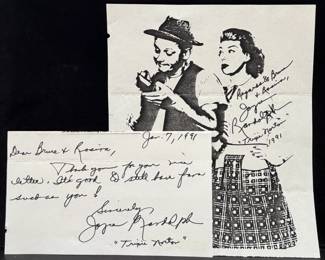 Regards to Bruce
& Rosaria,
Joyce
Randolph
"Trixie Norton"
1991
Jan. 7, 1991
Dear Bruce & Rosaria,
Thank you for your nice
letter. It's good to still have fans
such as you!
Sincerely,
Joyce Randolph
"Trixie Norton"